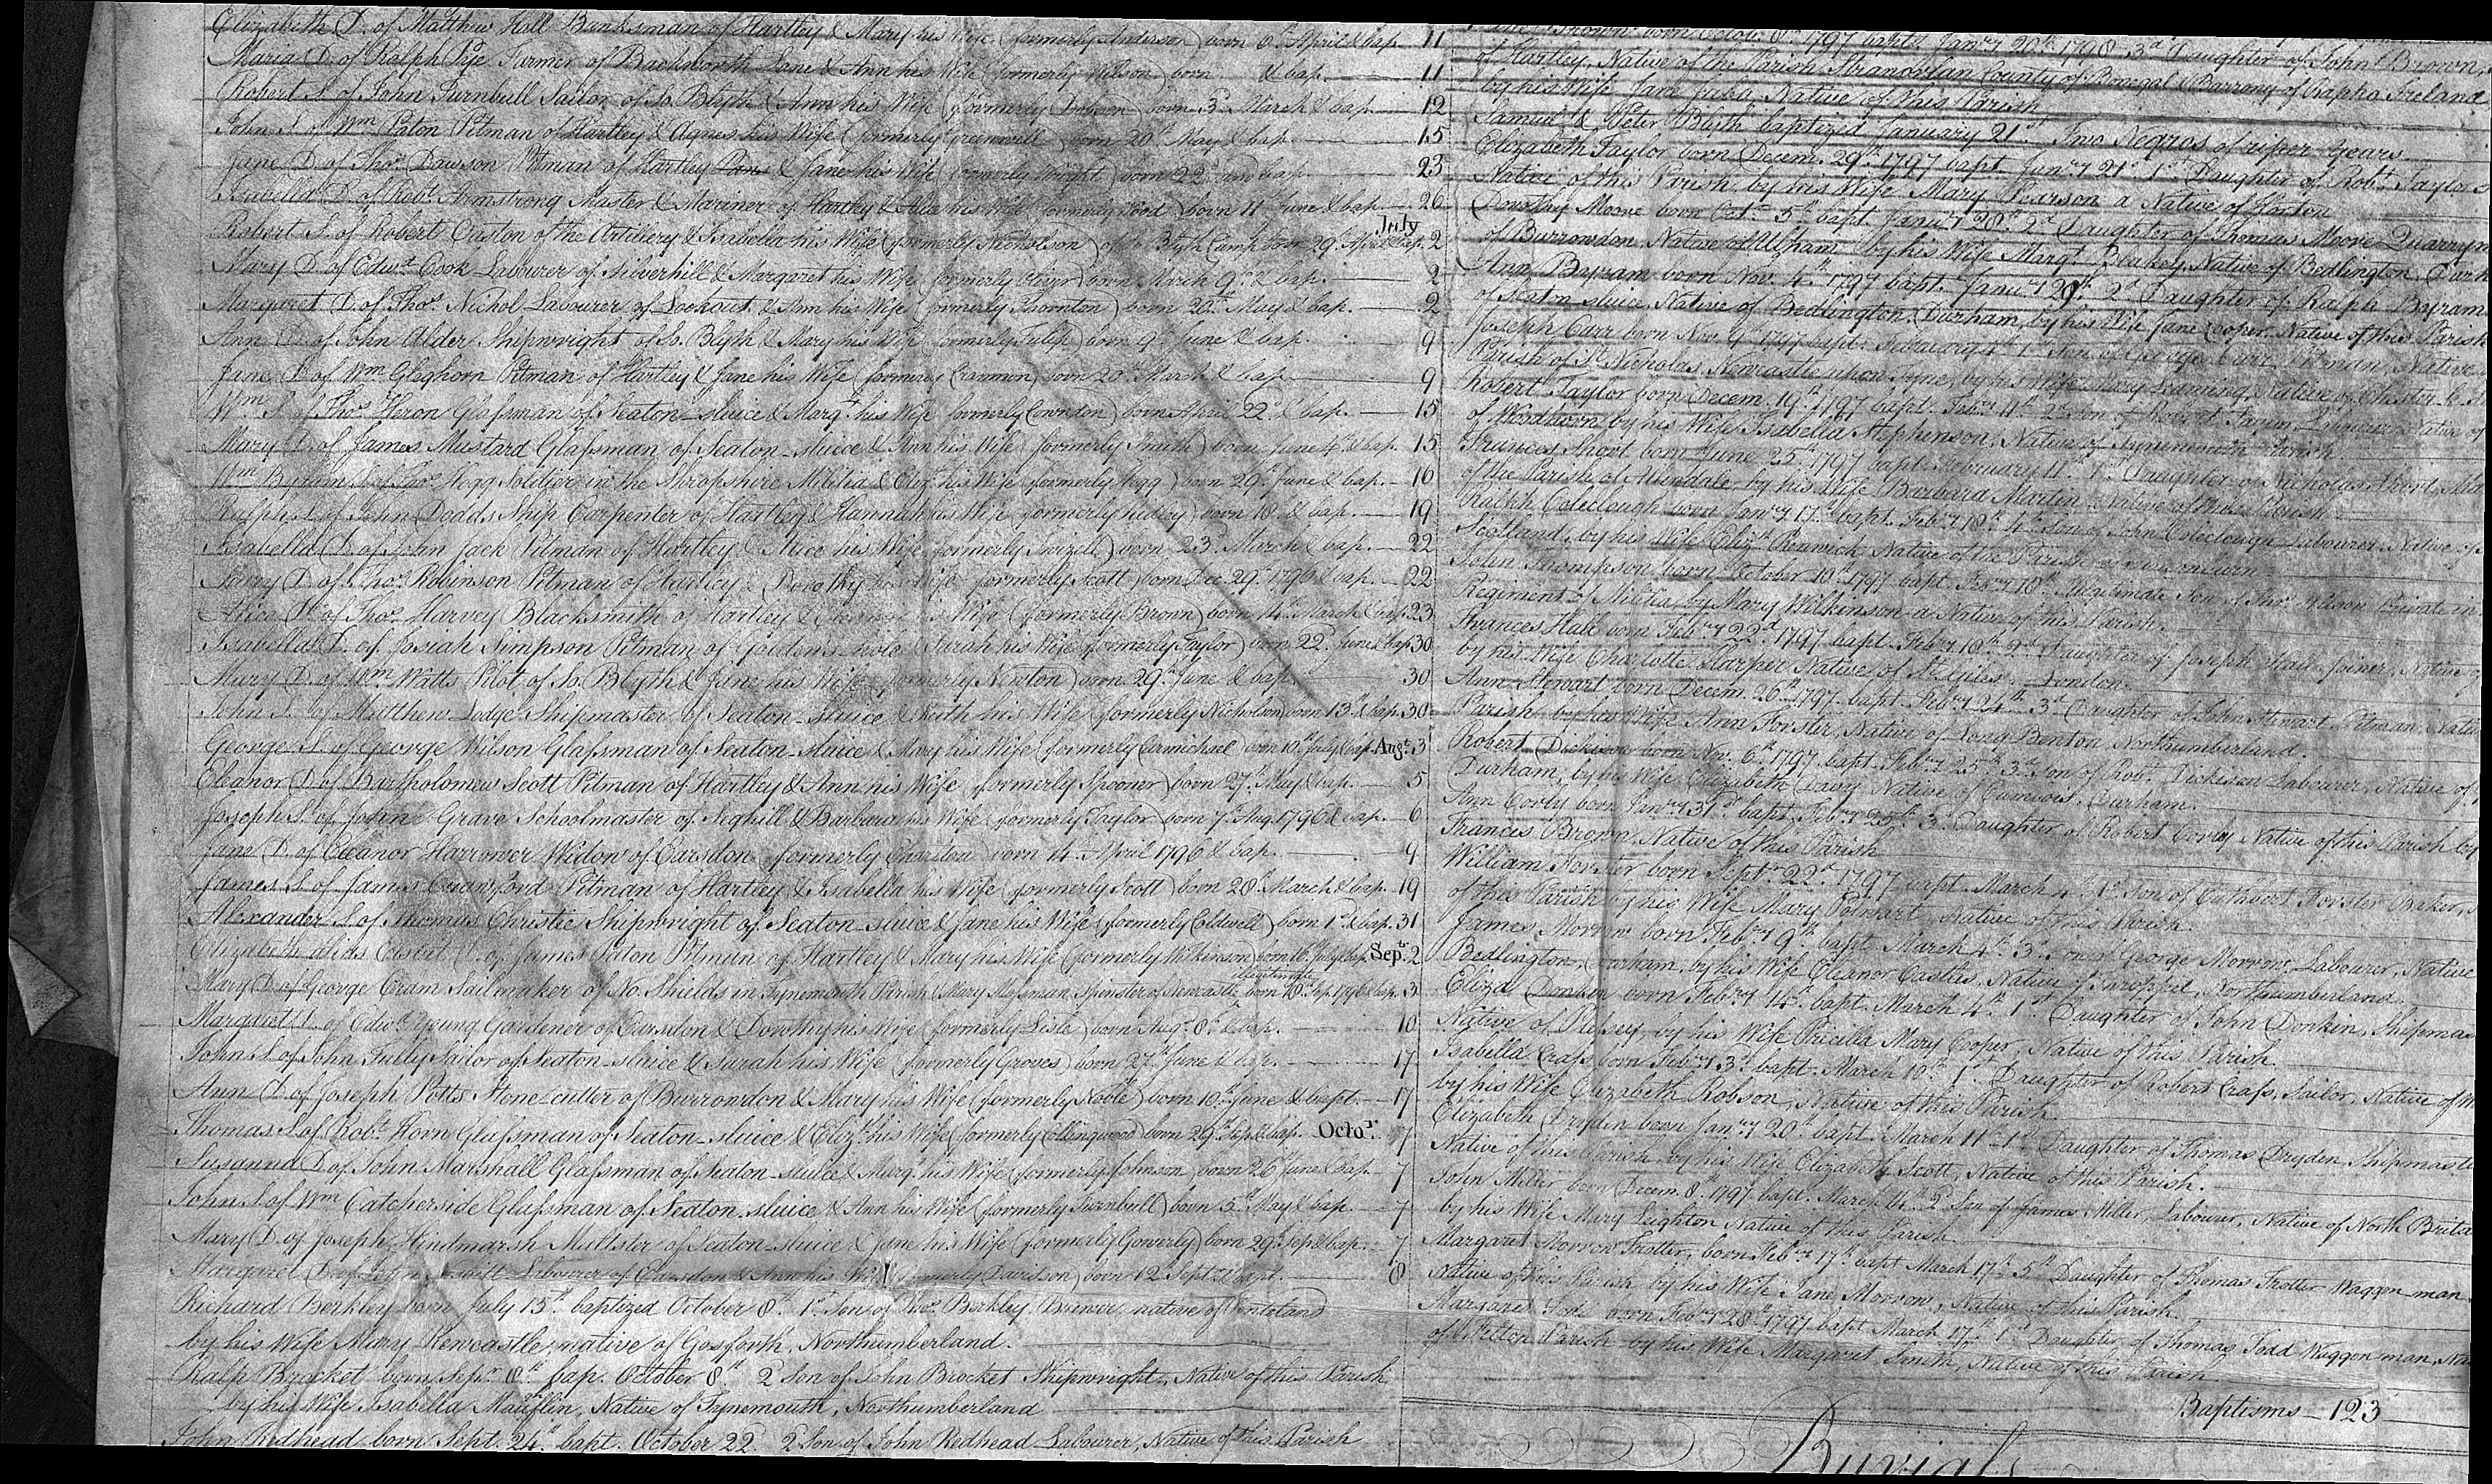 Elizabeth D. of Matthew Hall Banksman of Hartley & Mary his Wife (formerly Anderson) born 6th April & bap. 11
Maria D. of Ralph Pye Farmer of Backworth Lane & Ann his Wife (formerly Wilson) born & bap. 11
Robert S. of John Turnbull Sailor of So. Blyth & Ann his Wife (formerly Dobson) born 3d March & bap. 12
John S. of Wm Paton Pitman of Hartley & Agnes his Wife (formerly Greenwell) born 20th May & bap. 15
Jane D. of Thos. Dawson Pitman of Hartley & Jane his Wife (formerly Wright) born 22d and bap. 23
Isabella D. of Robt. Armstrong Master & Mariner of Hartley & Alice his Wife (formerly Wood) born 11 June & bap. 26
July
Robert S. of Robert Easton of the Artillery & Isabella his Wife (formerly Nicholson) of So. Blyth Camp born 29th April & bap. 2
Mary D. of Edwd. Cook Labourer of Silverhill & Margaret his Wife (formerly Oliver) born March 9th & bap. 2
Margaret D. of Thos. Nichol Labourer of Lookout & Ann his Wife (formerly Thornton) born 20th May & bap. 2
Ann D. of John Alder Shipwright of So. Blyth & Mary his Wife (formerly Tulip) born 9th June & bap. 9
Jane D. of Wm Gleghorn Pitman of Hartley & Jane his Wife (formerly Crammon) born 20th March & bap. 9
Wm S. of Thos. Heron Glassman of Seaton-sluice & Margt. his Wife (formerly Cownton) born April 22d & bap. 15
Mary D. of James Mustard Glassman of Seaton-sluice & Ann his Wife (formerly Smith) born June 4th & bap. 15
Wm Byram S. of Thos. Hogg Soldier in the Shropshire Militia & Elizth his Wife (formerly Hogg) born 29th June & bap. 16
Ralph S. of John Dodds Ship Carpenter of Hartley & Hannah his Wife (formerly Ridley) born 18 & bap. 19
Isabella D. of John Jack Pitman of Hartley & Alice his Wife (formerly Swizell) born 23d March & bap. 22
Mary D. of Thos. Robinson Pitman of Hartley & Dorothy his Wife (formerly Scott) born Dec. 29th 1796 & bap. 22
Alice D. of Thos. Harvey Blacksmith of Hartley & his Wife (formerly Brown) born 14th March & bap. 23
Isabella D. of Josiah Simpson Pitman of & Sarah his Wife (formerly Taylor) born 22d June & bap. 30
Mary D. of Wm Watts Pilot of So. Blyth & Jane his Wife (formerly Newton) born 29th June & bap. 30
John S. of Matthew Lodge Shipmaster of Seaton-sluice & Keith his Wife (formerly Nicholson) born 13th & bap. 30
George S. of George Wilson Glassman of Seaton-sluice & Mary his Wife (formerly Carmichael) born 10th July & bap. Augt. 3
Eleanor D. of Bartholomew Scott Pitman of Hartley & Ann his Wife (formerly Spooner) born 27th May & bap. 5
Joseph S. of John Grave Schoolmaster of Seghill & Barbara his Wife (formerly Taylor) born 7th Aug. 1796 & bap. 6
Jane D. of Eleanor Harrower Widow of Earsdon (formerly Charlton) born 14th April 1796 & bap. 9
James S. of James Crawford Pitman of Hartley & Isabella his Wife (formerly Scott) born 28th March & bap. 19
Alexander S. of Thomas Christie Shipwright of Seaton-sluice & Jane his Wife (formerly Coldwell) born 1st & bap. 31
Elizabeth alias D. of James Paton Pitman of Hartley & Mary his Wife (formerly Wilkinson) born 16th July & bap. Sepr. 2
illegitimate
Mary D. of George Cram Sailmaker of No. Shields in Tynemouth Parish & Mary Spinster of Newcastle born 28th Sep. 1796 & bap. 3
Margaret D. of Edwd. Young Gardener of Earsdon & Dorothy his Wife (formerly Lisle) born Augt. 8th & bap. 10
John S. of John Tully Sailor of Seaton-sluice & Sarah his Wife (formerly Groves) born 27th June & bap. 17
Ann D. of Joseph Potts Stone-cutter of Burrowdon & Mary his Wife (formerly Noble) born 10th June & bapt. 17
Thomas S. of Robt. Horn Glassman of Seaton-sluice & Elizth his Wife (formerly Collingwood) born 29th Sep. & bap. Octor. 7
Susanna D. of John Marshall Glassman of Seaton-sluice & Margt. his Wife (formerly Johnson) born 26th June & bap. 7
John S. of Wm Catcherside Glassman of Seaton-sluice & Ann his Wife (formerly Turnbull) born 5th May & bap. 7
Mary D. of Joseph Hindmarsh Maltster of Seaton-sluice & Jane his Wife (formerly Gowerly) born 29th Sep. & bap. 7
Margaret D. of John Labourer of Earsdon & Ann his Wife (formerly Davidson) born 12th Sept. & bapt. 8
Richard Berkley born July 15th baptized October 8th 1st Son of Thos. Berkley Brewer native of Ponteland
by his Wife Mary Newcastle, native of Gosforth, Northumberland.
Ralph Brocket born Sepr. 8th bap. October 8th 2 Son of John Brocket Shipwright, Native of this Parish
by his Wife Isabella Mauflin, Native of Tynemouth, Northumberland
John Redhead born Sept. 24th bapt. October 22 2 Son of John Redhead Labourer, Native of this Parish
Brown born Octob. 8th 1797 bapt. Janry 20th 1798 3d Daughter of John Brown,
of Hartley, Native of the Parish Stranorlan County of Donegal & Barrony of Rapho Ireland
by his Wife Jane Native of this Parish
Samuel & Peter Blyth baptized January 21st Two Negros of riper years.
Elizabeth Taylor born Decem. 29th 1797 bapt. Janry 21st 1st Daughter of Robt. Taylor
Native of this Parish by his Wife Mary Pearson a Native of Horton
Dorothy Moore born Octr. 5th bapt. Janry 28th 2d Daughter of Thomas Moore Quarryman
of Burrowdon, Native of Ulgham by his Wife Margt. Blakey Native of Bedlington Durham
Ann Byram born Nov. 4th 1797 bapt. Janry 29th 2d Daughter of Ralph Byram
of Seaton sluice, Native of Bedlington, Durham, by his Wife Jane Cooper Native of this Parish
Joseph Carr born Nov. 9th 1797 bapt. February 4th 1st Son of George Carr Pitman, Native
Parish of St. Nicholas, Newcastle upon Tyne, by his Wife Mary Leaming, Native of Chester le St
Robert Taylor born Decem. 19th 1797 bapt. Febry 11th 2d Son of Robert Labourer Native of
of Woodhorn by his Wife Isabella Stephenson, Native of Tynemouth Parish
Frances Short born June 25th 1797 bapt. February 11th 1st Daughter of Nicholas Short,
of the Parish of Allendale by his Wife Barbara Martin Native of this Parish
Ralph Coleclough born Janry 17th bapt. Febry 18th 4th Son of John Coleclough Labourer, Native of
Scotland, by his Wife Elizth Renwick Native of the Parish of
John Thompson born October 10th 1797 bapt. Febry 18th Illegitimate Son of Thos. Wilson Private in
Regiment of Militia, by Mary Wilkinson a Native of this Parish.
Frances Hall born Febry 22d 1797 bapt. Febry 18th 2d Daughter of Joseph Hall Joiner, Native of
by his Wife Charlotte Harper Native of St. Giles London
Ann Stewart born Decem. 26th 1797 bapt. Febry 24th 3d Daughter of John Stewart Pitman, Native
Parish by his Wife Ann Forster, Native of Long Benton Northumberland.
Robert Dickison born Nov. 6th 1797 bapt. Febry 25th 3d Son of Robt. Dickison Labourer, Native of
Durham, by his Wife Elizabeth Davy Native of Camboise, Durham.
Ann Corby born Janry 31st bapt. Febry 25th 3d Daughter of Robert Corby Native of this Parish by
Francis Brown, Native of this Parish
William Forster born Septr. 22d 1797 bapt. March 4th 1st Son of Cuthbert Forster Baker,
of this Parish by his Wife Mary Polwart, Native of this Parish.
James Morrow born Febry 9th bapt. March 4th 3d Son of George Morrow, Labourer, Native
Bedlington, Durham, by his Wife Eleanor Castles, Native of Northumberland.
Eliza Donkin born Febry 14th bapt. March 4th 1st Daughter of John Donkin, Shipmas
Native of Plessey, by his Wife Pricilla Mary Cooper, Native of this Parish.
Isabella Crass born Febry 3d bapt. March 10th 1st Daughter of Robert Crass, Sailor, Native of
by his Wife Elizabeth Robson, Native of this Parish.
Elizabeth Dryden born Janry 20th bapt. March 11th 1st Daughter of Thomas Dryden, Shipmaste
Native of this Parish, by his Wife Elizabeth Scott, Native of this Parish.
John Miller born Decem. 8th 1797 bapt. March 14th 2d Son of James Miller, Labourer, Native of North Brita
by his Wife Mary Leighton Native of this Parish
Margaret Morrow Trotter, born Febry 17th bapt March 17th 5th Daughter of Thomas Trotter Waggon-man
Native of this Parish by his Wife Jane Morrow, Native of this Parish.
Margaret Todd born Febry 28th 1797 bapt March 17th 1st Daughter of Thomas Todd Waggon man, Na
of Felton Parish by his Wife Margaret Smith, Native of this Parish
Baptisms — 123
Burials